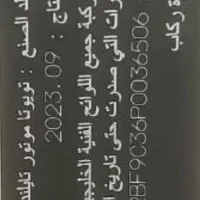 الصنع : تويوتا موتور تايلند
تاج : 2023.09
ركبة جميع اللوائح الفنية الخليجي
ات التي صدرت حتى تاريخ ا
2BF9C36P0036506
ة ركاب